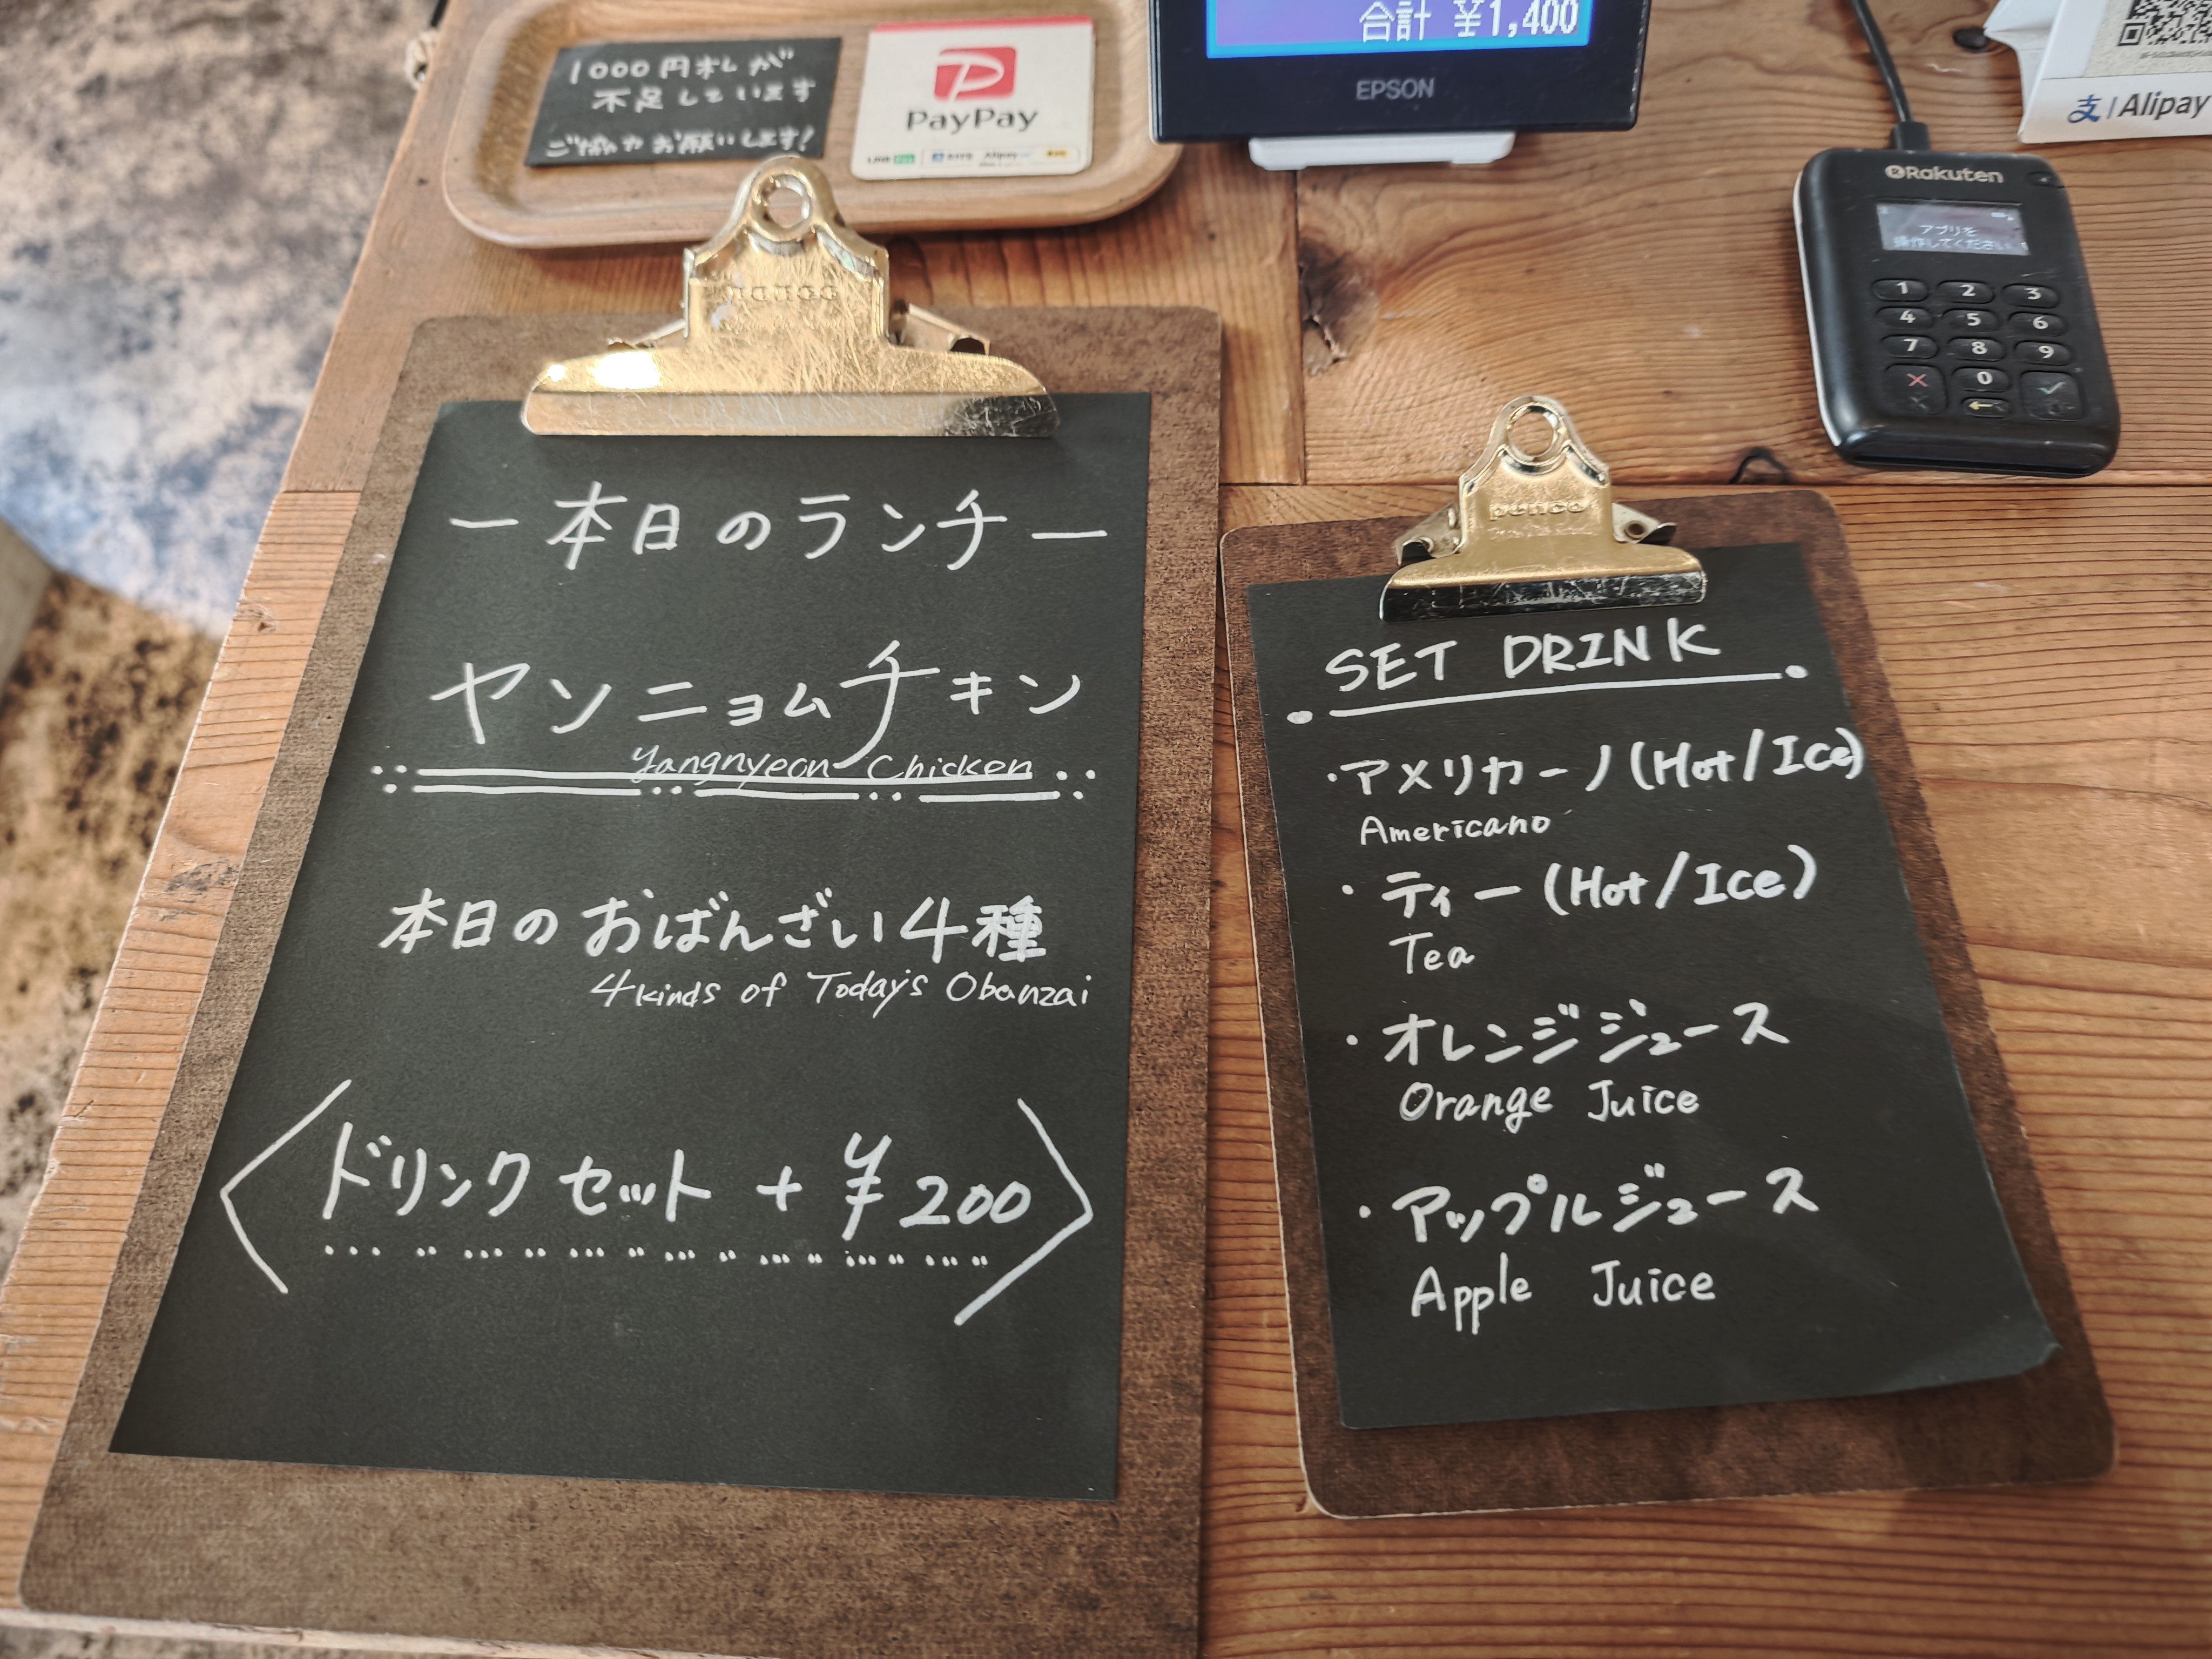 1000円札が
不足しています
ご協力お願いします!
PayPay
Alipay
合計 ¥1,400
EPSON
支|Alipay
Rakuten
アプリを
操作してください
1 2 3
4 5 6
7 8 9
0
ー本日のランチー
ヤンニョムチキン
Yangnyeon Chicken
本日のおばんざい4種
4kinds of Today's Obanzai
ドリンクセット + ¥200
penco
SET DRINK
・アメリカーノ(Hot/Ice)
Americano
・ティー(Hot/Ice)
Tea
・オレンジジュース
Orange Juice
・アップルジュース
Apple Juice